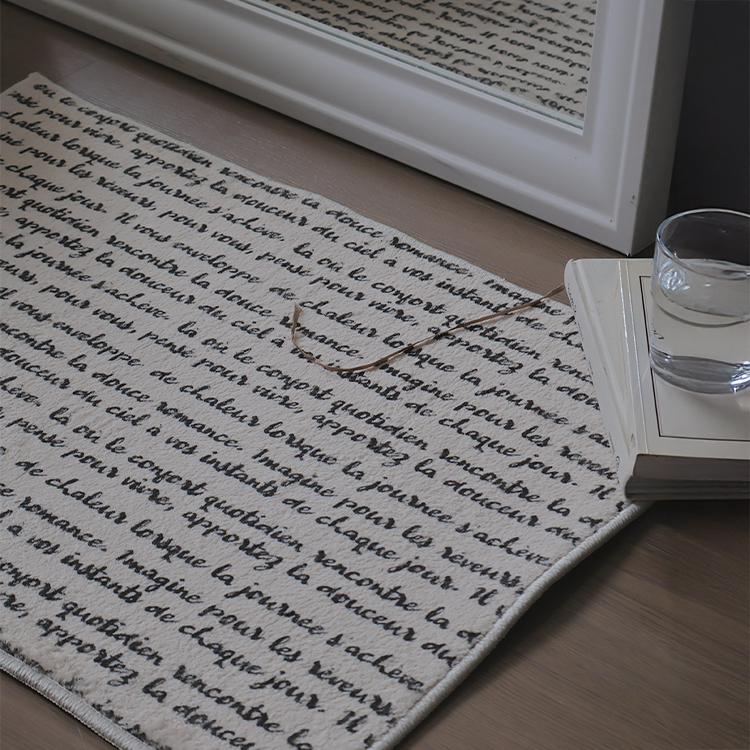 où le confort quotidien rencontre la douce romance. Imaginé
pensé pour vivre, apportez la douceur du ciel à vos instants de
chaleur lorsque la journée s'achève. là où le confort quotidien rencontre la
pour les rêveurs, pour vous, pensé pour vivre, apportez la douceur
chaque jour. Il vous enveloppe de chaleur lorsque la journée
confort quotidien rencontre la douce romance. Imaginé pour les rêveurs
apportez la douceur du ciel à vos instants de chaque jour. Il
la journée s'achève. là où le confort quotidien rencontre la
rêveurs, pour vous, pensé pour vivre, apportez la douceur du
vous enveloppe de chaleur lorsque la journée s'achève
rencontre la douce romance. Imaginé pour les rêveurs
douceur du ciel à vos instants de chaque jour. Il
là où le confort quotidien rencontre la
pensé pour vivre, apportez la douceur du
de chaleur lorsque la journée s'achève
romance. Imaginé pour les rêveurs,
à vos instants de chaque jour. Il
confort quotidien rencontre la
apportez la douceur